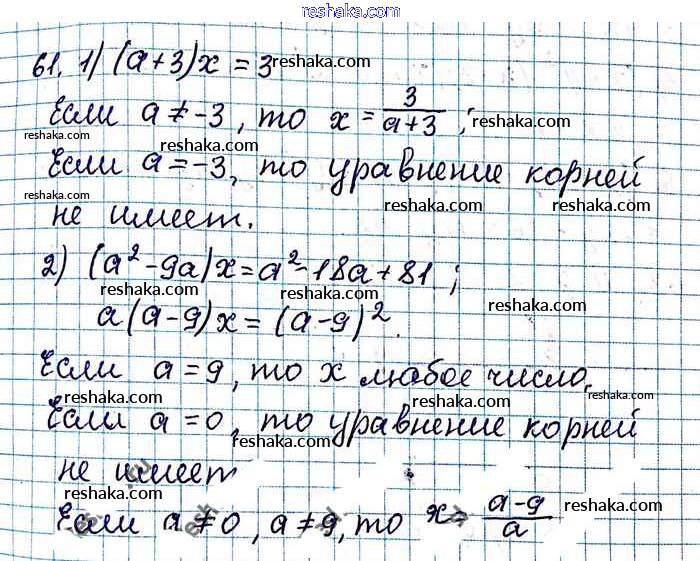 reshaka.com
61. 1) (a+3)x = 3 reshaka.com
Если a ≠ -3, то x = 3/(a+3); reshaka.com
reshaka.com
Если a = -3, то уравнение корней
reshaka.com reshaka.com
не имеет.
2) (a² - 9a)x = a² - 18a + 81;
reshaka.com reshaka.com reshaka.com
a(a-9)x = (a-9)².
Если a = 9, то x любое число.
reshaka.com reshaka.com
Если a = 0, то уравнение корней
reshaka.com reshaka.com
не имеет
reshaka.com reshaka.com
Если a ≠ 0, a ≠ 9, то x = (a-9)/a
reshaka.com